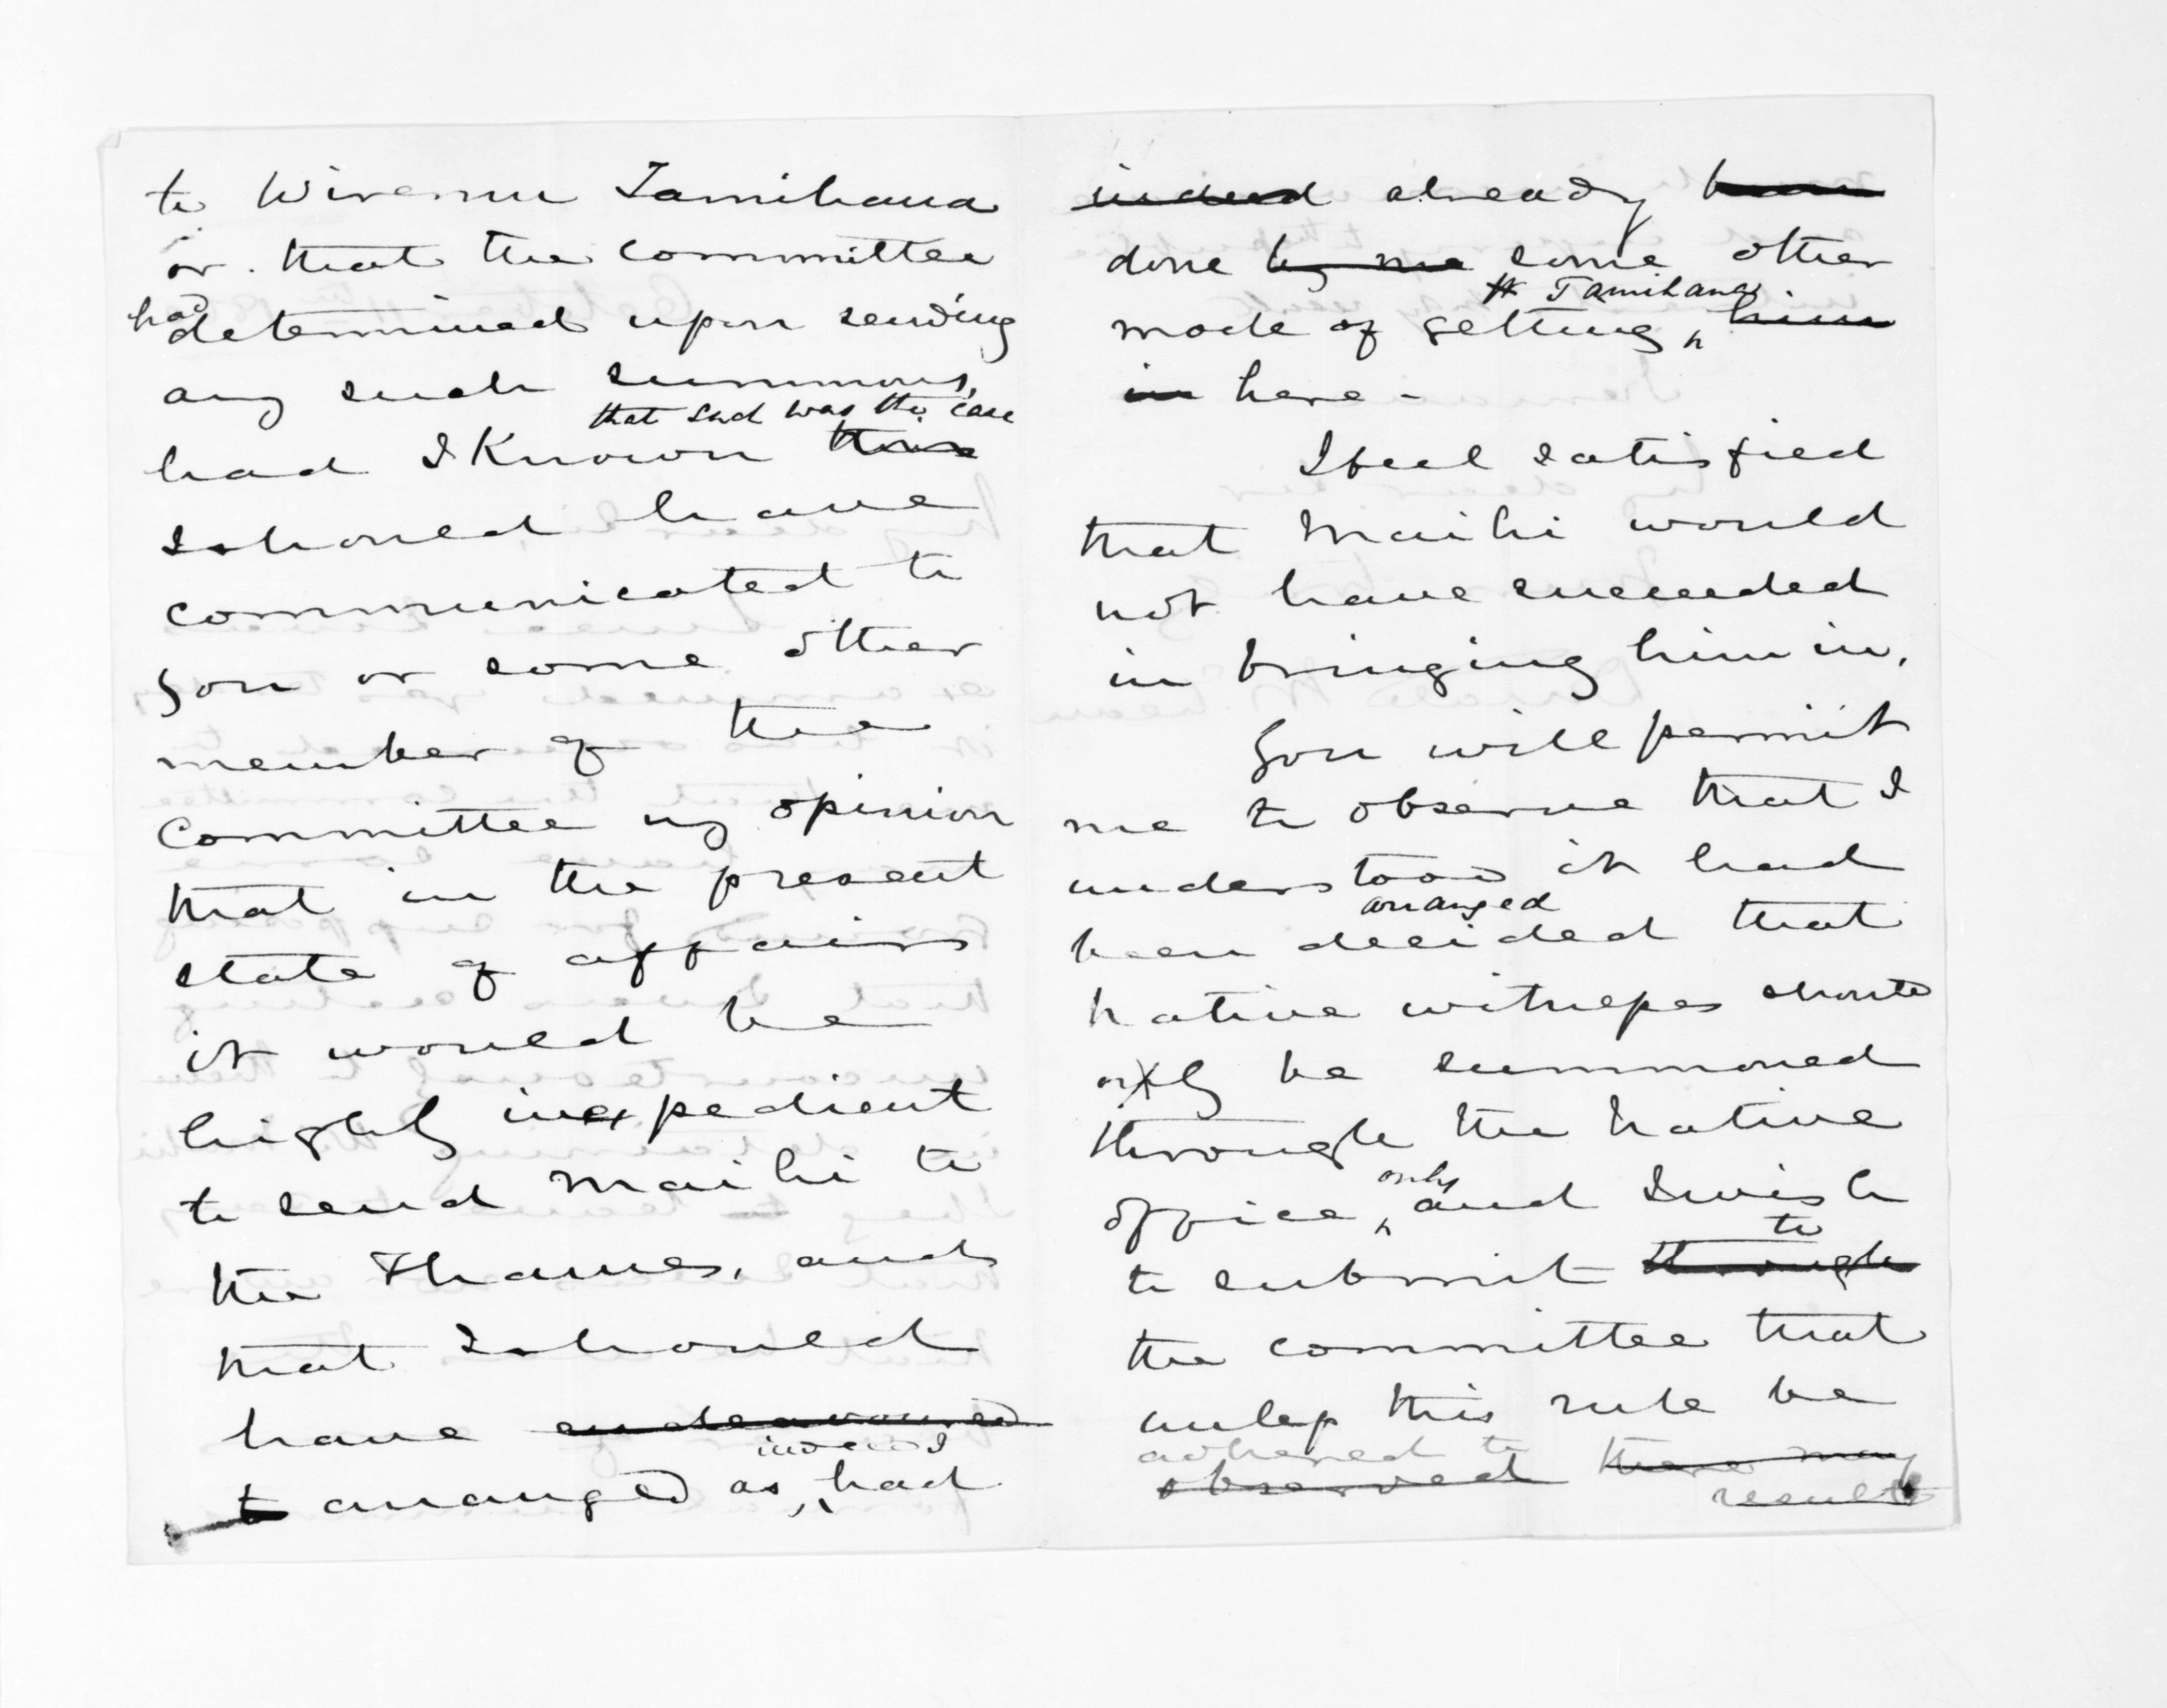 to Wiremu Tamihana
or that the committee
had
determined upon sending
any such summons,
that such was the case
had I Known this
I should have
communicated to
you or some other
member of the
Committee my opinion
that in the present
state of affairs
it would be
highly inexpedient
to send Maihi to
the Thames, and
that I should
have endeavoured
indeed I
to arranged as, had
indeed already been
done by me some other
Tamihana
mode of getting him
in here -
I feel satisfied
that Maihi would
not have succeeded
in bringing him in,
You will permit
me to observe that I
understood it had
arranged
been decided that
Native witnesses should
only be summoned
through the Native
only
office, and I wish
to
to submit through
the committee that
unless this rule be
adhered to
observed there may
result